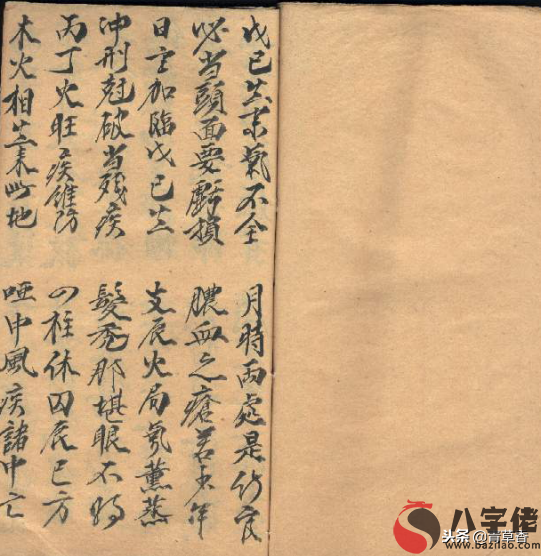 戊己生来氣不全 月時两處是伤官
必当頭面要虧損 膿血之瘡若少年
日主加臨戊己生 支辰火局氣薰蒸
冲刑尅破当残疾 髮秃那堪眼不明
丙丁火旺疾维防 四柱休囚辰巳方
木火相生来此地 啞中風疾諸中亡
八字佬
头条 @青草香
www.bazilao.com